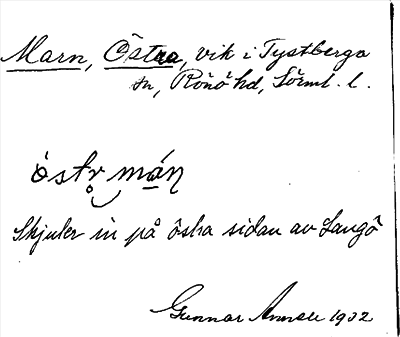 Marn, Östra, vik i Tystberga
sn, Rönö hd, Sörml. l.
östr̥ mán
Skjuler in på östra sidan av Langö
Gunnar 1932